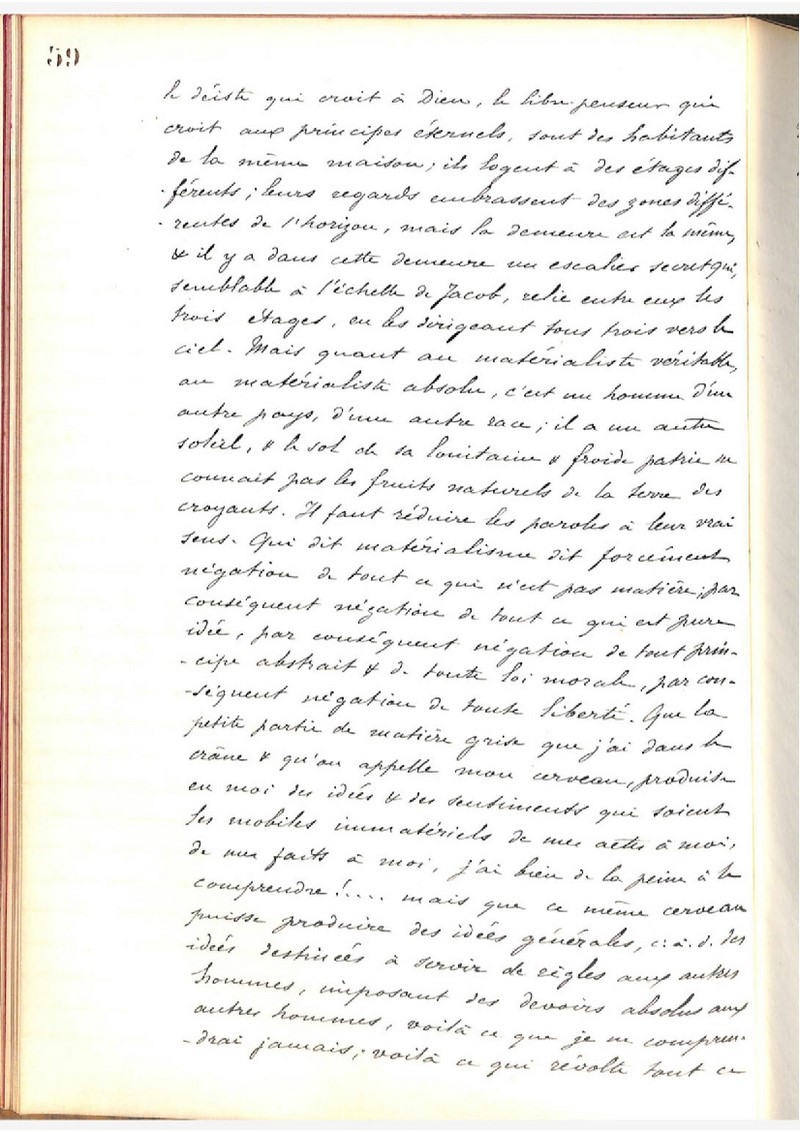 59
le déiste qui croit à Dieu, le libre-penseur qui
croit aux principes éternels, sont des habitants
de la même maison; ils logent à des étages dif-
-férents; leurs regards embrassent des zones diffé-
-rentes de l'horizon, mais la demeure est la même,
& il y a dans cette demeure un escalier secret qui,
semblable à l'échelle de Jacob, relie entre eux les
trois étages, en les dirigeant tous trois vers le
ciel. Mais quant au matérialiste véritable,
au matérialiste absolu, c'est un homme d'un
autre pays, d'une autre race; il a un autre
soleil, & le sol de sa lointaine & froide patrie ne
connait pas les fruits naturels de la terre des
croyants. Il faut réduire les paroles à leur vrai
sens. Qui dit matérialisme dit forcément
négation de tout ce qui n'est pas matière; par
conséquent négation de tout ce qui est pure
idée, par conséquent négation de tout prin-
-cipe abstrait & de toute loi morale, par con-
-séquent négation de toute liberté. Que la
petite partie de matière grise que j'ai dans le
crâne & qu'on appelle mon cerveau, produise
en moi des idées & des sentiments qui soient
les mobiles immatériels de mes actes à moi,
de mes faits à moi, j'ai bien de la peine à le
comprendre!.... mais que ce même cerveau
puisse produire des idées générales, c. à. d. des
idées destinées à servir de règles aux autres
hommes, imposant des devoirs absolus aux
autres hommes, voilà ce que je ne compren-
-drai jamais; voilà ce qui révolte tout ce